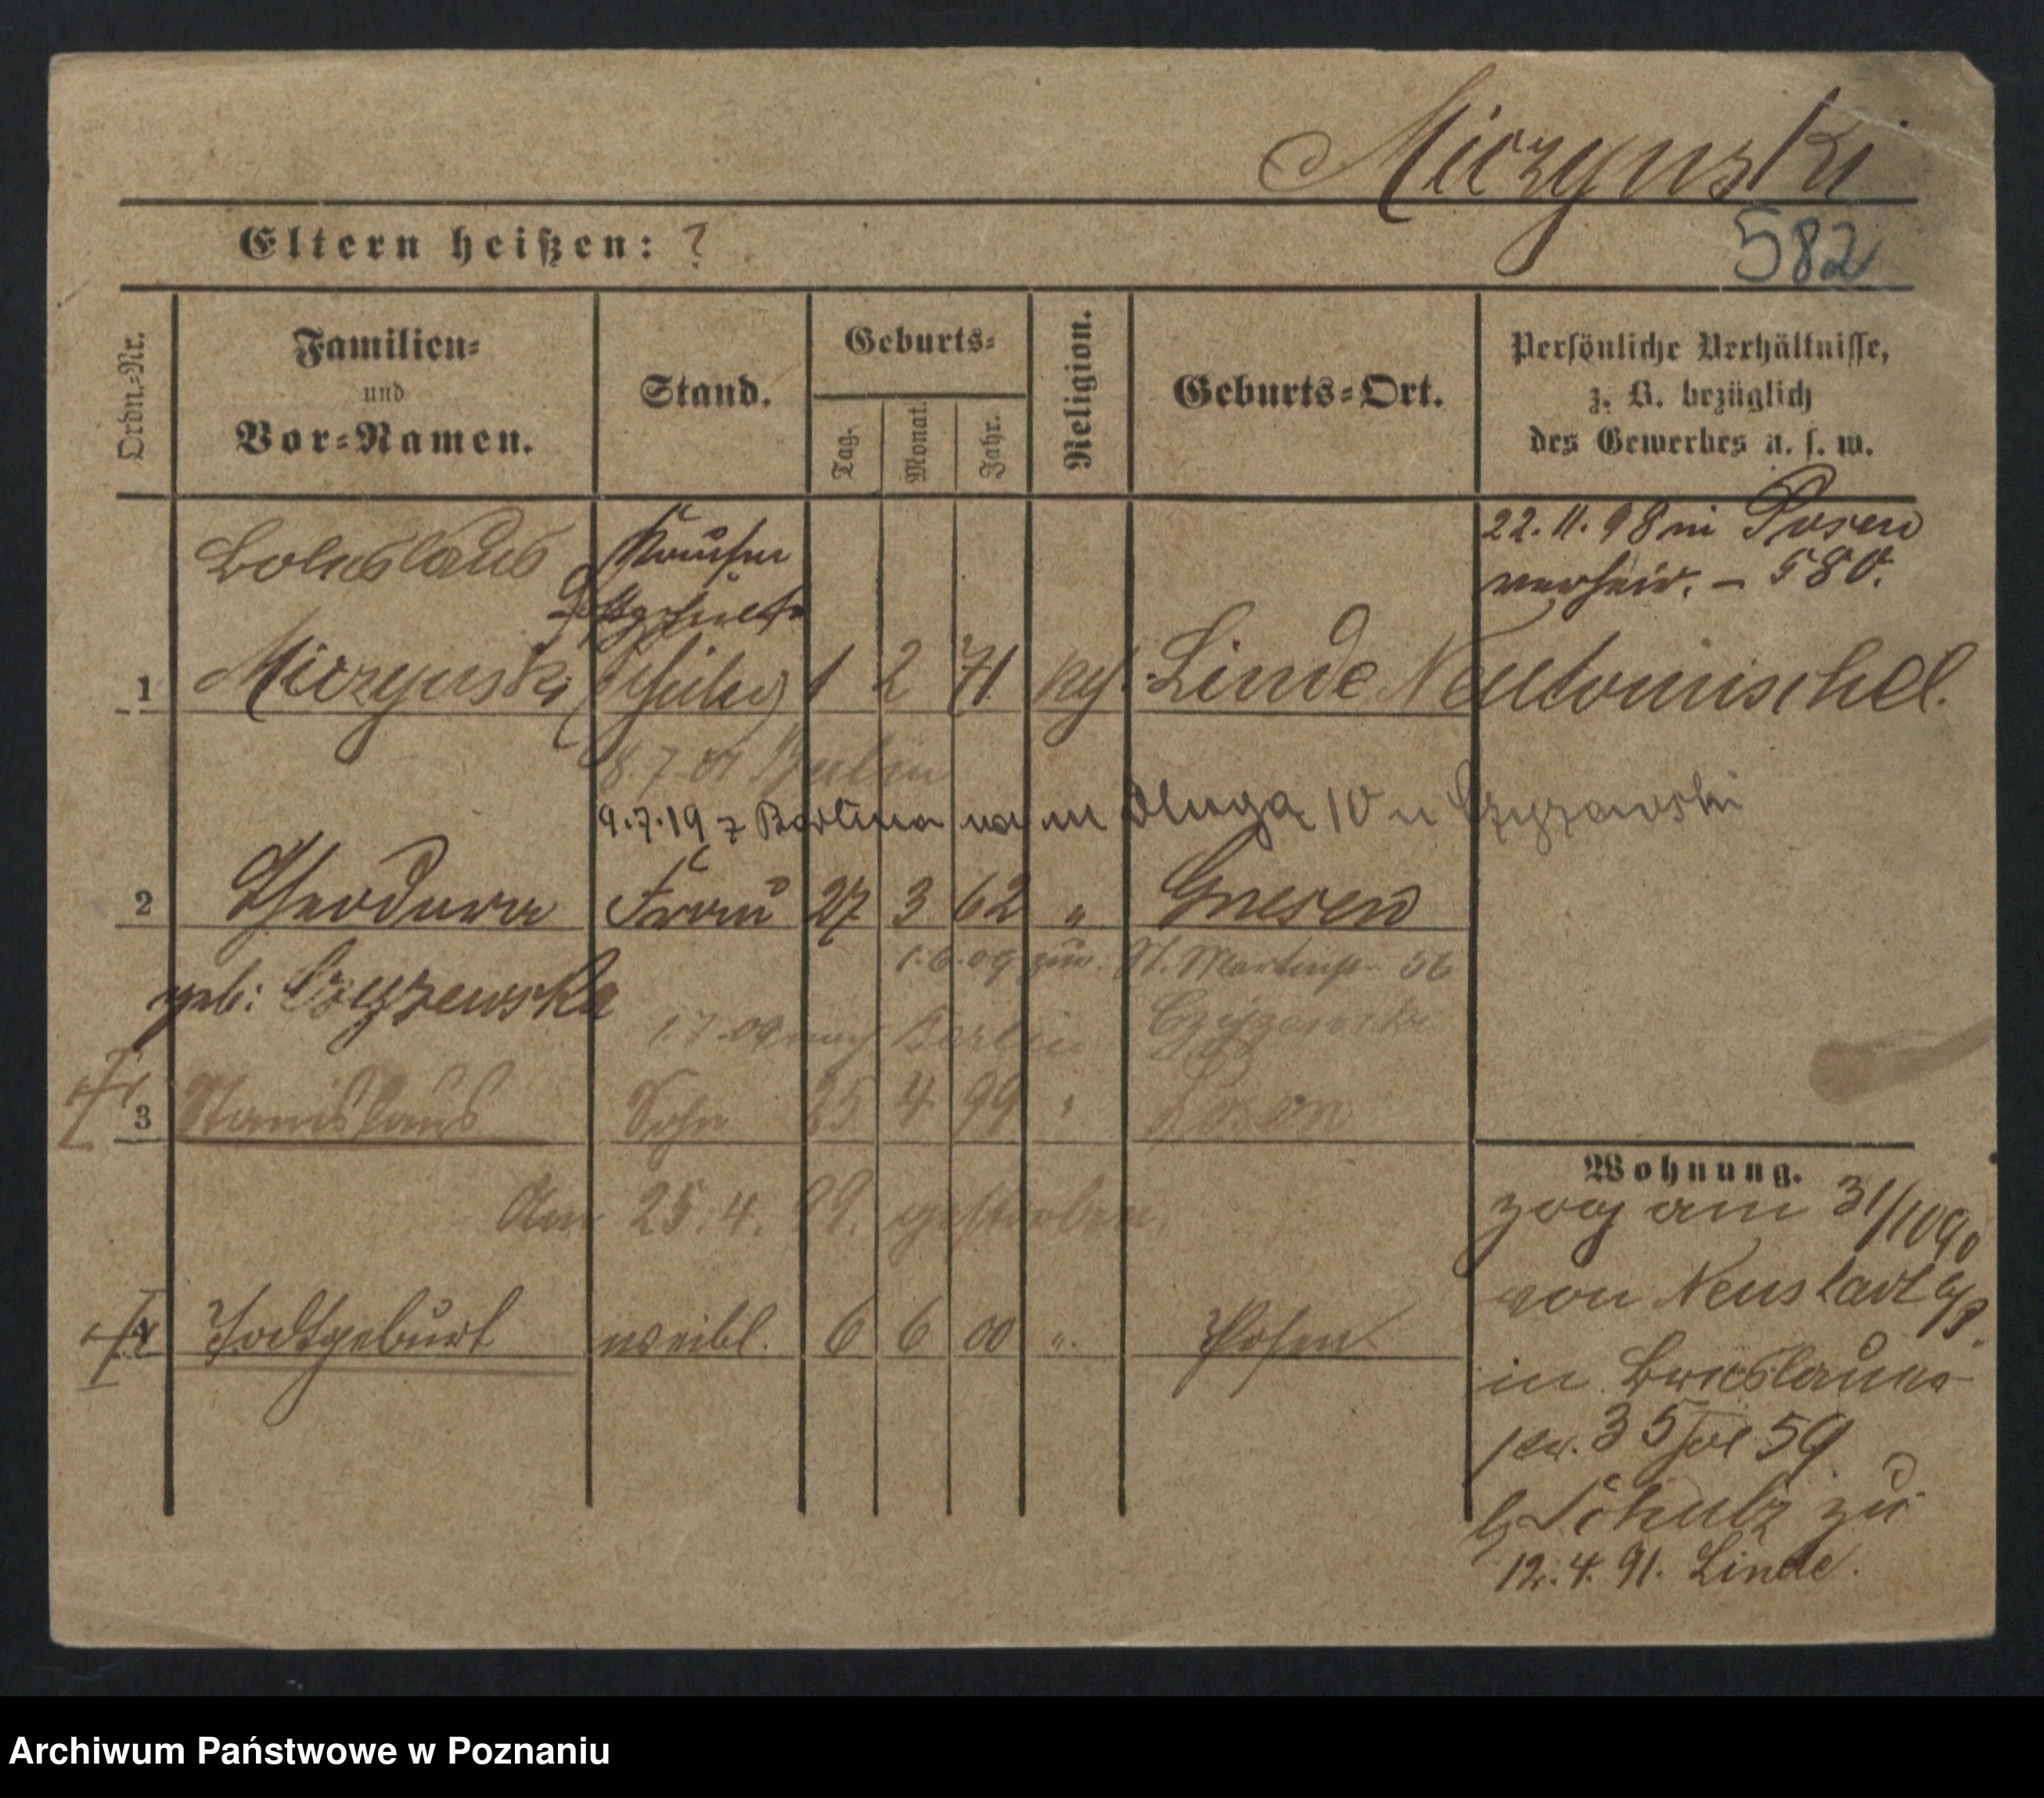 Miczynski
Eltern heißen: ?
582
Ordn.-Nr.
Familien-
und
Vor-Namen.
Stand.
Geburts-
Tag.
Monat.
Jahr.
Religion.
Geburts-Ort.
Persönliche Verhältnisse,
z. B. bezüglich
des Gewerbes u. s. w.
22.11.98 in Posen
verheir. – 580.
Boleslaus
1 Miczynski 1 2 71 kth. Linde Neutomischel.
8.7.01 Berlin
9.7.19 z Berlina na Dluga 10 u Czyzewski
2 Theodora Frau 27 3 62 " Gnesen
1.6.09 zur. St. Martinstr. 56
geb: Czyzewska
Czyzewski
1.7.09 nach Berlin
3 Stanislaus Sohn 25 4 99 " Posen
Am 25.4.99. gestorben.
4 Todtgeburt weibl. 6 6 00 " Posen
Wohnung.
zog am 31/10 90
von Neustadt
in
35 59
b Schulz zu
12.4.91. Linde.
Archiwum Państwowe w Poznaniu